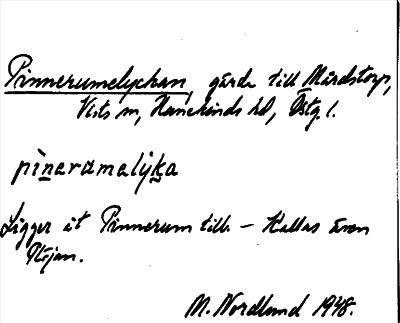 Pinnerumelyckan, gärde till Mårdstorp,
Vists sn, Hanekinds hd, Östg. l.
pìnerumalyka
Ligger åt Pinnerum till. – Kallas även
Plöjan.
M. Nordlund 1948.